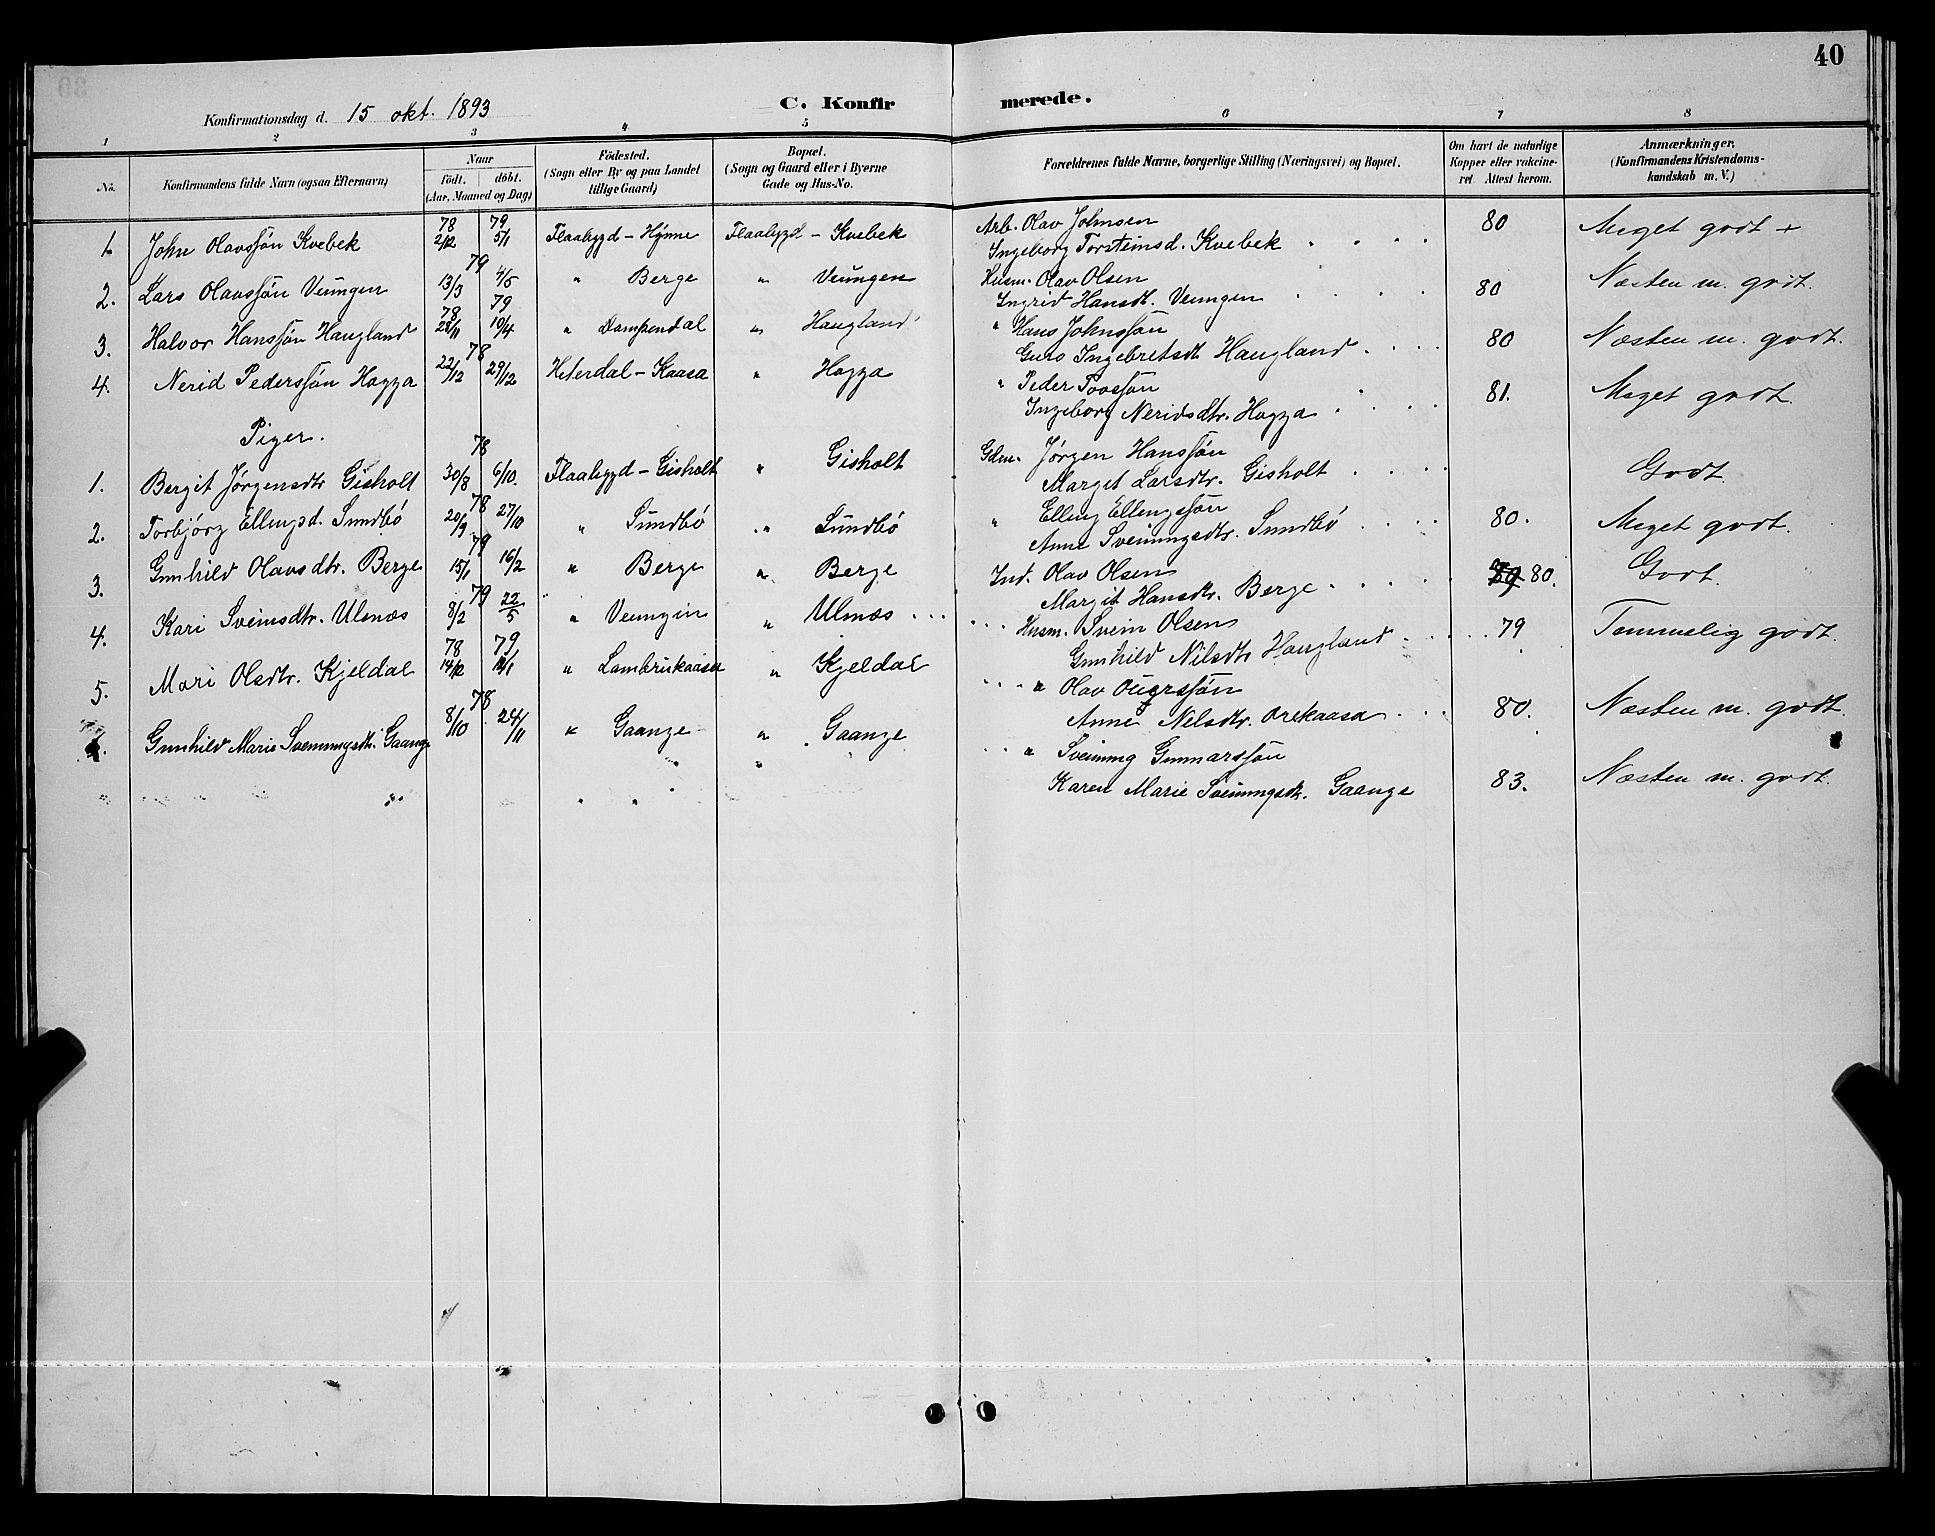 40
Konfirmationsdag d. 15 okt. 1893
C. Konfirmerede.
1 2 3 4 5 6 7 8
No.
Konfirmandens fulde Navn (ogsaa Efternavn)
Naar
födt. döbt.
(Aar, Maaned og Dag)
Födested.
(Sogn eller By og paa Landet
tillige Gaard)
Bopæl.
(Sogn og Gaard eller i Byerne
Gade og Hus-No.
Forældrenes fulde Navne, borgerlige Stilling (Næringsvei) og Bopæl.
Om havt de naturlige
Kopper eller vakcine-
ret Attest herom.
Anmærkninger.
(Konfirmandens Kristendoms-
kundskab m. V.)
1. John Olavssøn Kvebek 78 2/12 79 5/1 Flaabygd - Hynne Flaabygd - Kvebek Arb. Olav Johnsen
Ingeborg Torsteinsd. Kvebek 80 Meget godt +
2. Lars Olavssøn Veungen 79 13/3 4/5 " Berge " Veungen Husm. Olav Olsen
Ingrid Hansdt. Veungen 80 Næsten m. godt.
3. Halvor Hanssøn Haugland 78 28/11 79 10/4 " Damsendal " Haugland " Hans Johnssøn
Guro Ingebretsdt Haugland 80 Næsten m. godt.
4. Nerid Pederssøn Hogga 78 22/12 29/12 Hiterdal - Kaasa " Hogga " Peder Povssøn
Ingeborg Neridsdtr. Hogga 81. Meget godt.
Piger.
1. Bergit Jørgensdtr Gisholt 78 30/8 6/10. Flaabygd - Gisholt " Gisholt Gdm. Jørgen Hanssøn
Marget Larsdtr. Gisholt Godt
2. Torbjørg Ellingsd. Sundbö 78 20/9 27/10 " Sundbö " Sundbö " Elling Ellingssøn
Anne Sveinungsdtr. Sundbö 80. Meget godt.
3. Gunhild Olavsdtr. Berge 79 15/1 16/2 " Berge " Berge Ind. Olav Olsen
Margit Hansdtr. Berge 80. Godt.
4. Kari Sveinsdtr. Ulmæs 79 8/2 22/5 " Veungin " Ulmæs Husm. Svein Olsen
Gunhild Nilsdtr Haugland 79 Temmelig godt.
5. Mari Olsdtr. Kjeldal 78 14/12 79 12/1 " Lambrukaasa " Kjeldal " Olav
Anne Nilsdtr. Orekaasa 80. Næsten m. godt.
Gunhild Marie Sveinungsdt. Gaange 78 8/10 24/11 " Gaange " Gaange " Sveinung Gunnarssøn
Karen Marie Sveinungsdt. Gaange 83. Næsten m. godt.